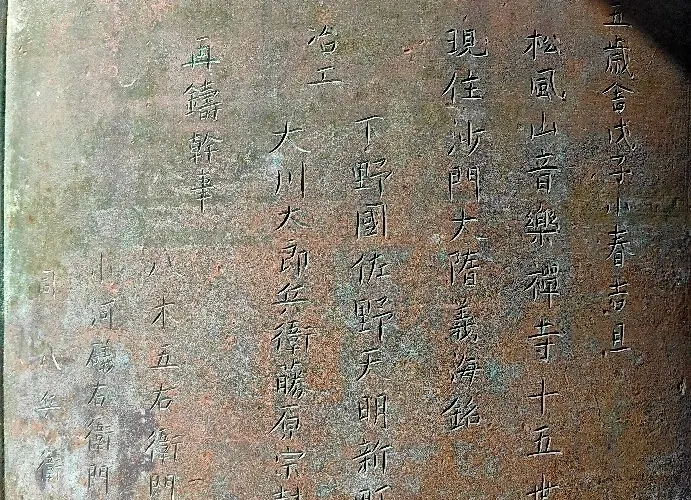 五歳舎戊子小春吉旦
松風山音樂禪寺十五世
現住沙門大隋義海銘
冶工
下野國佐野天明新町
大川太郎兵衛藤原宗
再鑄幹事
八木五右衛門
小河磯右衛門
同 八 兵 衛